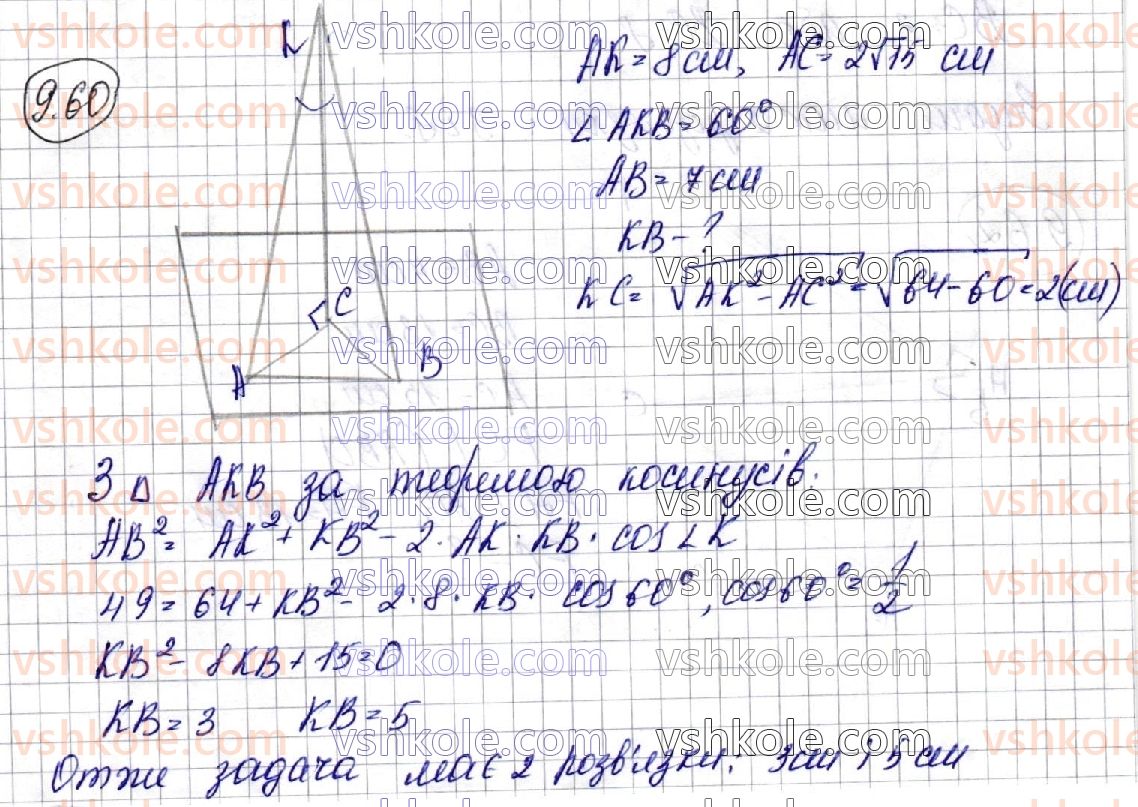 9.60
AK = 8 см, AC = 2√15 см
∠ AKB = 60°
AB = 7 см
KB - ?
KC = √AK² - AC² = √64-60 = 2(см)
K
C
A
B
З △ AKB за теоремою косинусів:
AB² = AK² + KB² - 2 · AK · KB · cos ∠ K
49 = 64 + KB² - 2 · 8 · KB · cos 60°, cos 60° = 1/2
KB² - 8KB + 15 = 0
KB = 3 KB = 5
Отже задача має 2 розв'язки: 3см і 5 см
vshkole.com